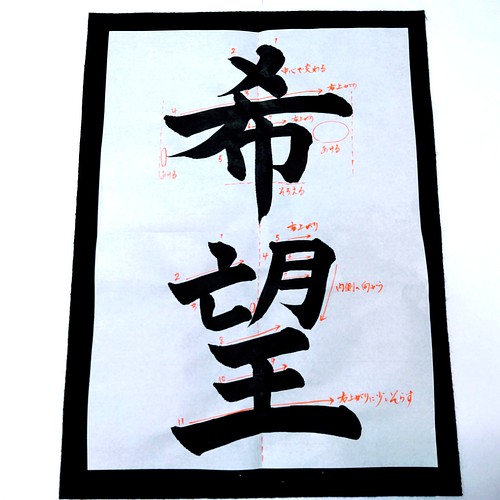 希望
中心で変わる
右上がり
右上がり
あける
あける
そろえる
右上がり
内側に向かう
右上がりに少しそらす